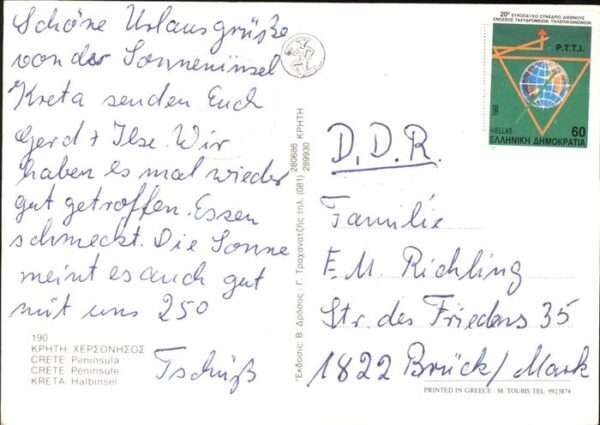 Schöne Urlausgrüße
von der Sonneninsel
Kreta senden Euch
Gerd + Ilse. Wir
haben es mal wieder
gut getroffen. Essen
schmeckt. Die Sonne
meint es auch gut
mit uns 25°
Tschüß
190
ΚΡΗΤΗ ΧΕΡΣΟΝΗΣΟΣ
CRETE: Peninsula
CRETE: Péninsule
KRETA: Halbinsel
Έκδοσις: Β. Δρόσος - Γ. Τραχανατζής τηλ. (081) 280686 289930 ΚΡΗΤΗ
20ο ΕΥΡΩΠΑΪΚΟ ΣΥΝΕΔΡΙΟ ΔΙΕΘΝΟΥΣ
ΕΝΩΣΕΩΣ ΤΑΧΥΔΡΟΜΕΙΩΝ ΤΗΛΕΠΙΚΟΙΝΩΝΙΩΝ
P.T.T.I.
HELLAS
60
ΕΛΛΗΝΙΚΗ ΔΗΜΟΚΡΑΤΙΑ
D.D.R.
Familie
E.M. Richling
Str. des Friedens 35
1822 Brück/Mark
PRINTED IN GREECE - M. TOUBIS TEL. 9923874